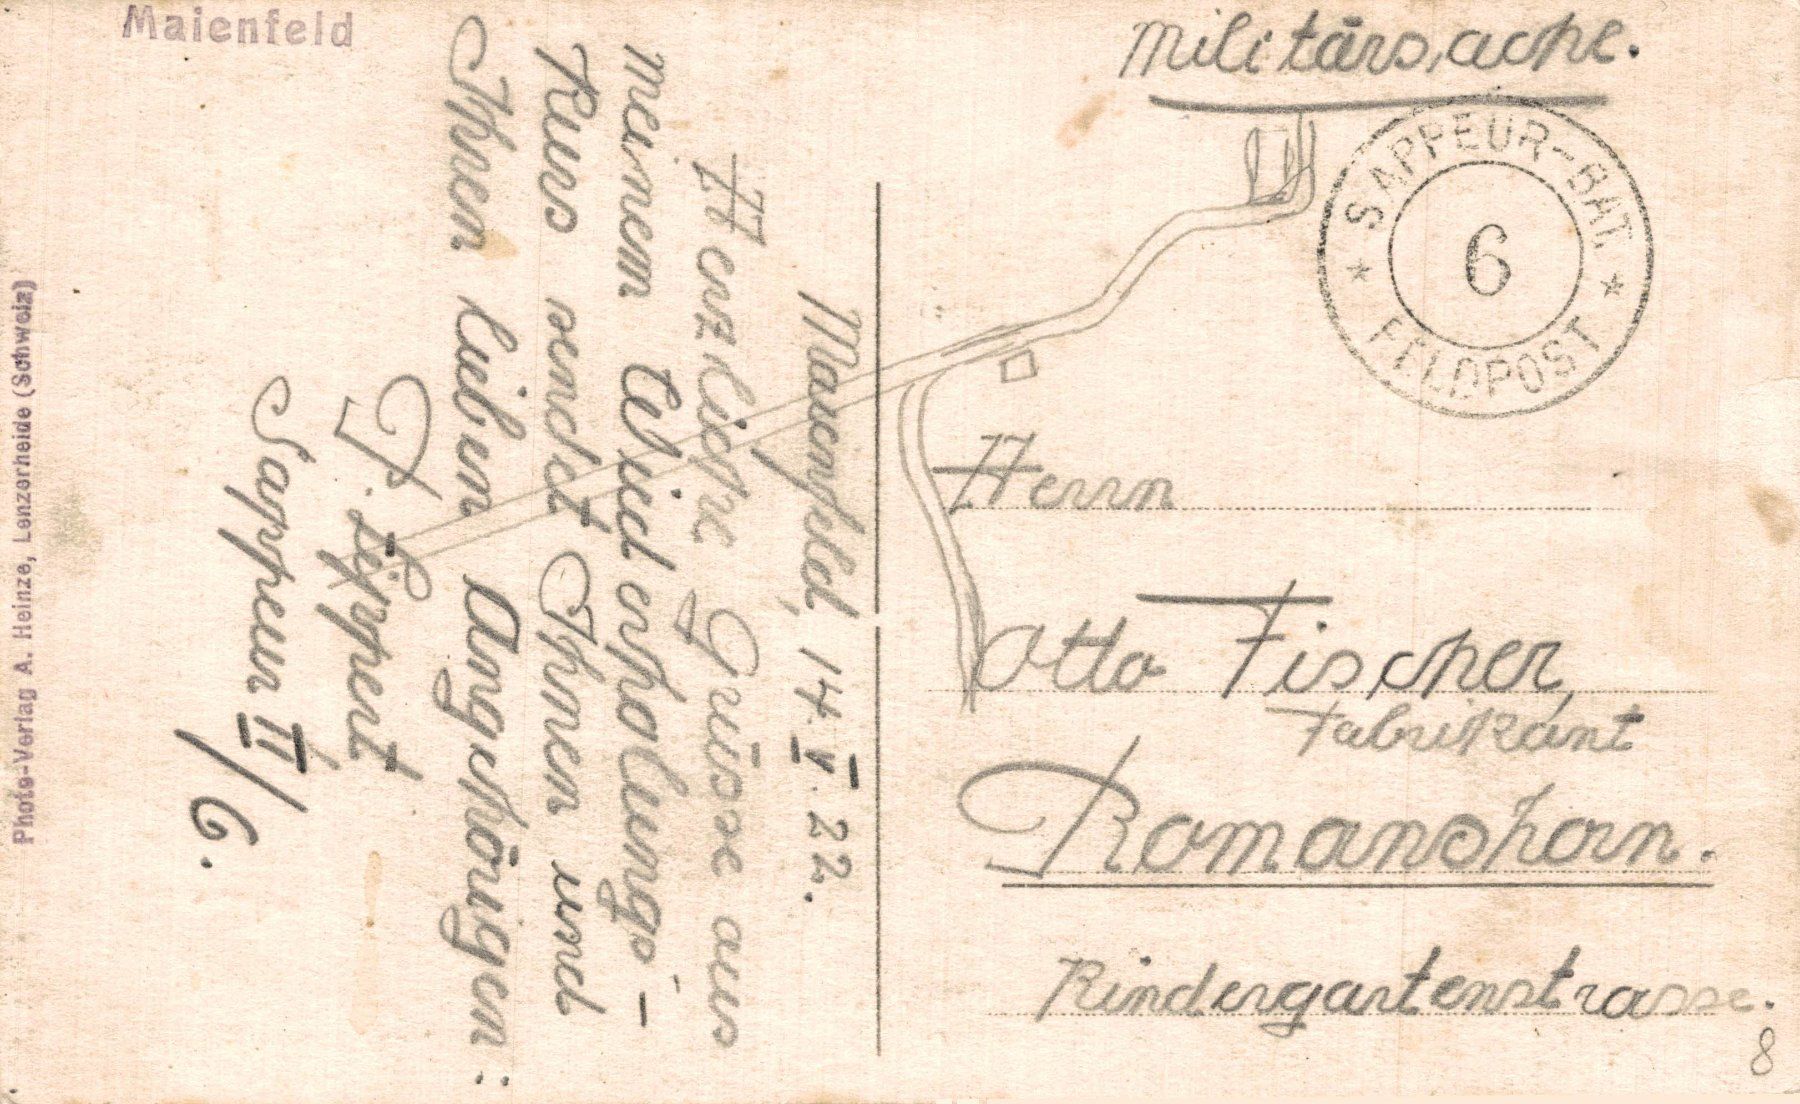 Maienfeld
Photo-Verlag A. Heinze, Lenzerheide (Schweiz)
Maienfeld, 14. V. 22.
Herzliche Grüsse aus
meinem Wiederholungs-
Kurs sendet Ihnen und
Ihren lieben Angehörigen:
J. Lippert
Sappeur II/6.
Militärsache.
SAPPEUR-BAT.
6
FELDPOST
Herrn
Otto Fischer,
Fabrikant
Romanshorn.
Kindergartenstrasse.
8